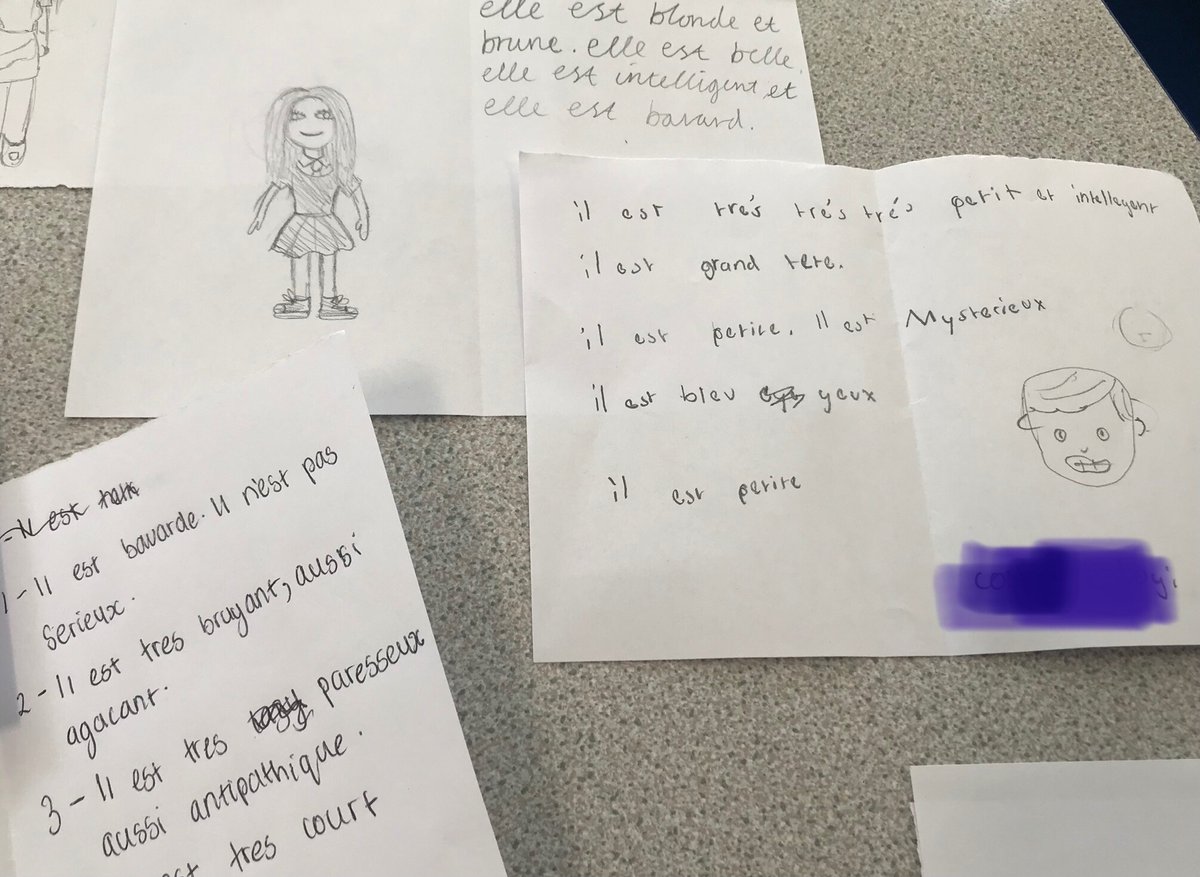 elle est blonde et
brune. elle est belle.
elle est intelligent et
elle est bavard.
il est très très très petit et intellegent
il est grand tete.
il est petite. Il est Mysterieux
il est bleu yeux
il est petite
1 - Il est bavarde. Il n'est pas
serieux.
2 - Il est tres bruyant, aussi
agacant.
3 - Il est tres paresseux
aussi antipathique.
est tres court